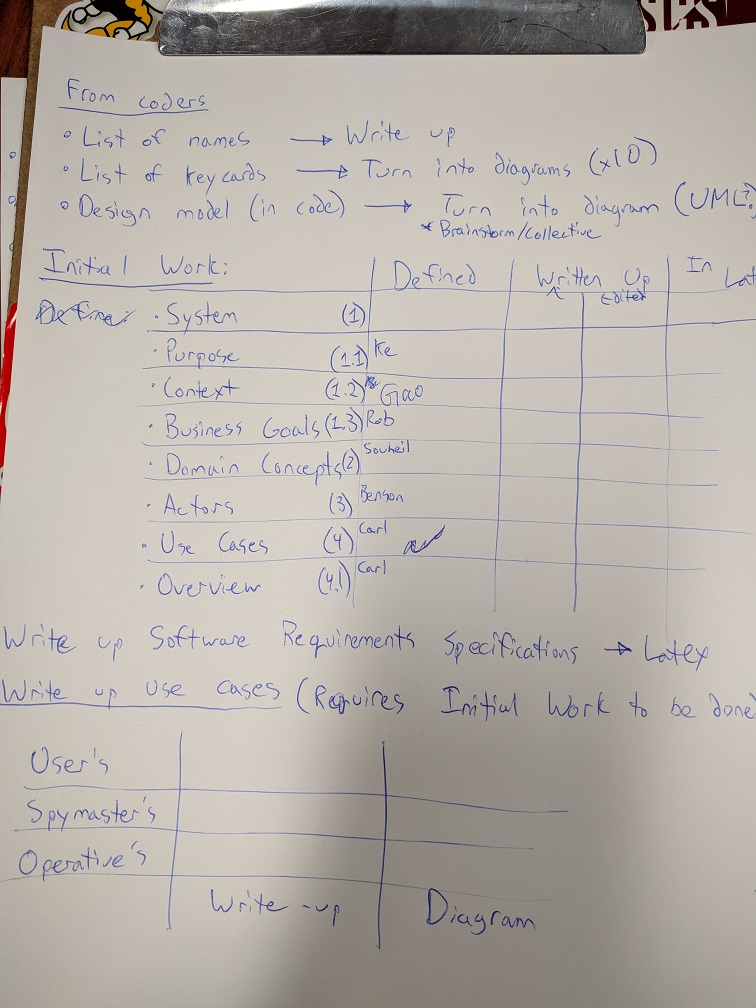 From coders
• List of names → Write up
• List of keycards → Turn into diagrams (x10)
• Design model (in code) → Turn into diagram (UML?)
* Brainstorm/collective
Initial Work: Defined Written Up In Lat
Edited
Define: • System (1)
• Purpose (1.1) Ke
• Context (1.2) Gao
• Business Goals (1.3) Rob
• Domain Concepts (2) Souheil
• Actors (3) Benson
• Use Cases (4) Carl
• Overview (4.1) Carl
Write up Software Requirements Specifications → Latex
Write up use cases (Requires Initial Work to be done
User's
Spymaster's
Operative's
Write-up Diagram